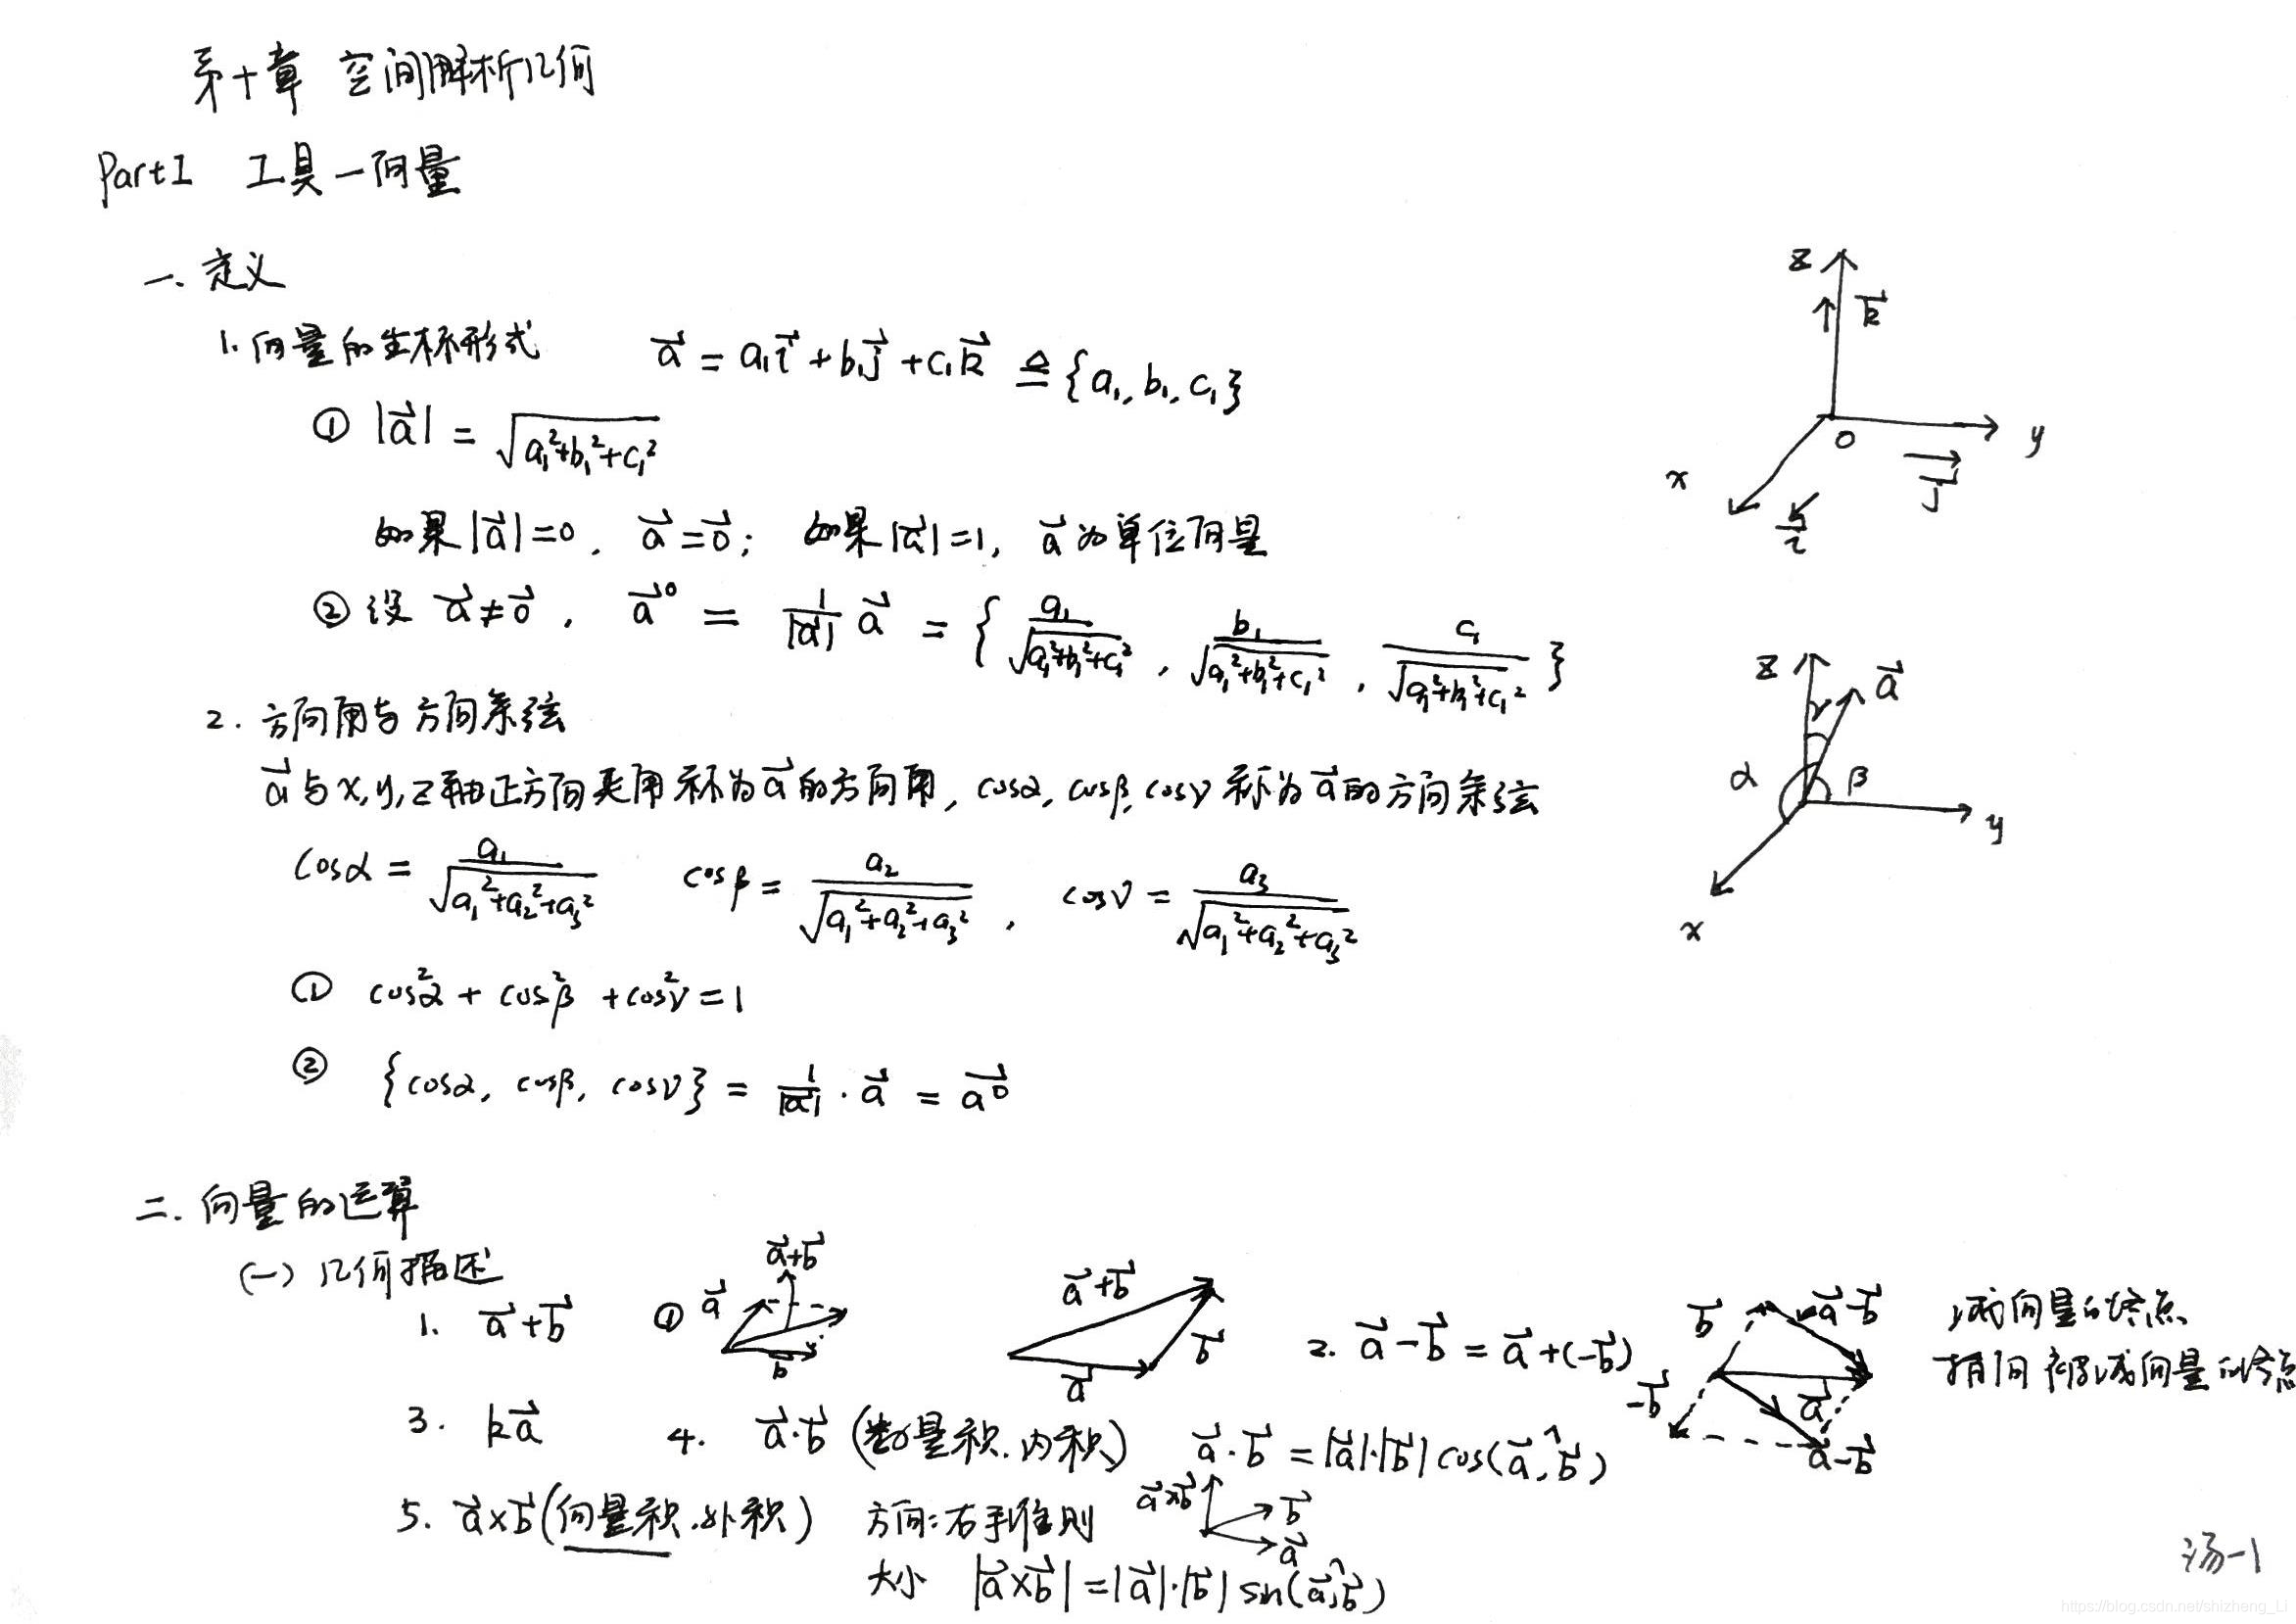 第十章 空间解析几何
Part I 工具—向量
一. 定义
1. 向量的坐标形式 a⃗ = a₁i⃗ + b₁j⃗ + c₁k⃗ ≜ {a₁, b₁, c₁}
① |a⃗| = √(a₁²+b₁²+c₁²)
如果|a⃗|=0, a⃗=0⃗; 如果|a⃗|=1, a⃗为单位向量
② 设 a⃗≠0⃗, a⃗⁰ = 1/|a⃗| a⃗ = {a₁/√(a₁²+b₁²+c₁²), b₁/√(a₁²+b₁²+c₁²), c₁/√(a₁²+b₁²+c₁²)}
z k⃗
o y
x i⃗ j⃗
2. 方向角与方向余弦
a⃗与x, y, z轴正方向夹角称为a⃗的方向角, cosα, cosβ, cosγ称为a⃗的方向余弦
cosα = a₁/√(a₁²+a₂²+a₃²) cosβ = a₂/√(a₁²+a₂²+a₃²), cosγ = a₃/√(a₁²+a₂²+a₃²)
z a⃗
γ
α β
y
x
① cos²α + cos²β + cos²γ = 1
② {cosα, cosβ, cosγ} = 1/|a⃗| · a⃗ = a⃗⁰
二. 向量的运算
(一) 几何描述
1. a⃗+b⃗ ① a⃗ a⃗+b⃗ b⃗ a⃗+b⃗ b⃗ a⃗
2. a⃗-b⃗ = a⃗+(-b⃗) b⃗ a⃗-b⃗ -b⃗ a⃗ a⃗-b⃗
减向量的终点
指向被减向量的终点
3. ka⃗ 4. a⃗·b⃗ (数量积.内积) a⃗·b⃗ = |a⃗|·|b⃗| cos(a⃗,^b⃗)
5. a⃗×b⃗ (向量积.外积) 方向:右手准则 a⃗×b⃗ b⃗ a⃗
大小 |a⃗×b⃗| = |a⃗|·|b⃗| sin(a⃗,^b⃗)
汤-1
https://blog.csdn.net/shizheng_Li